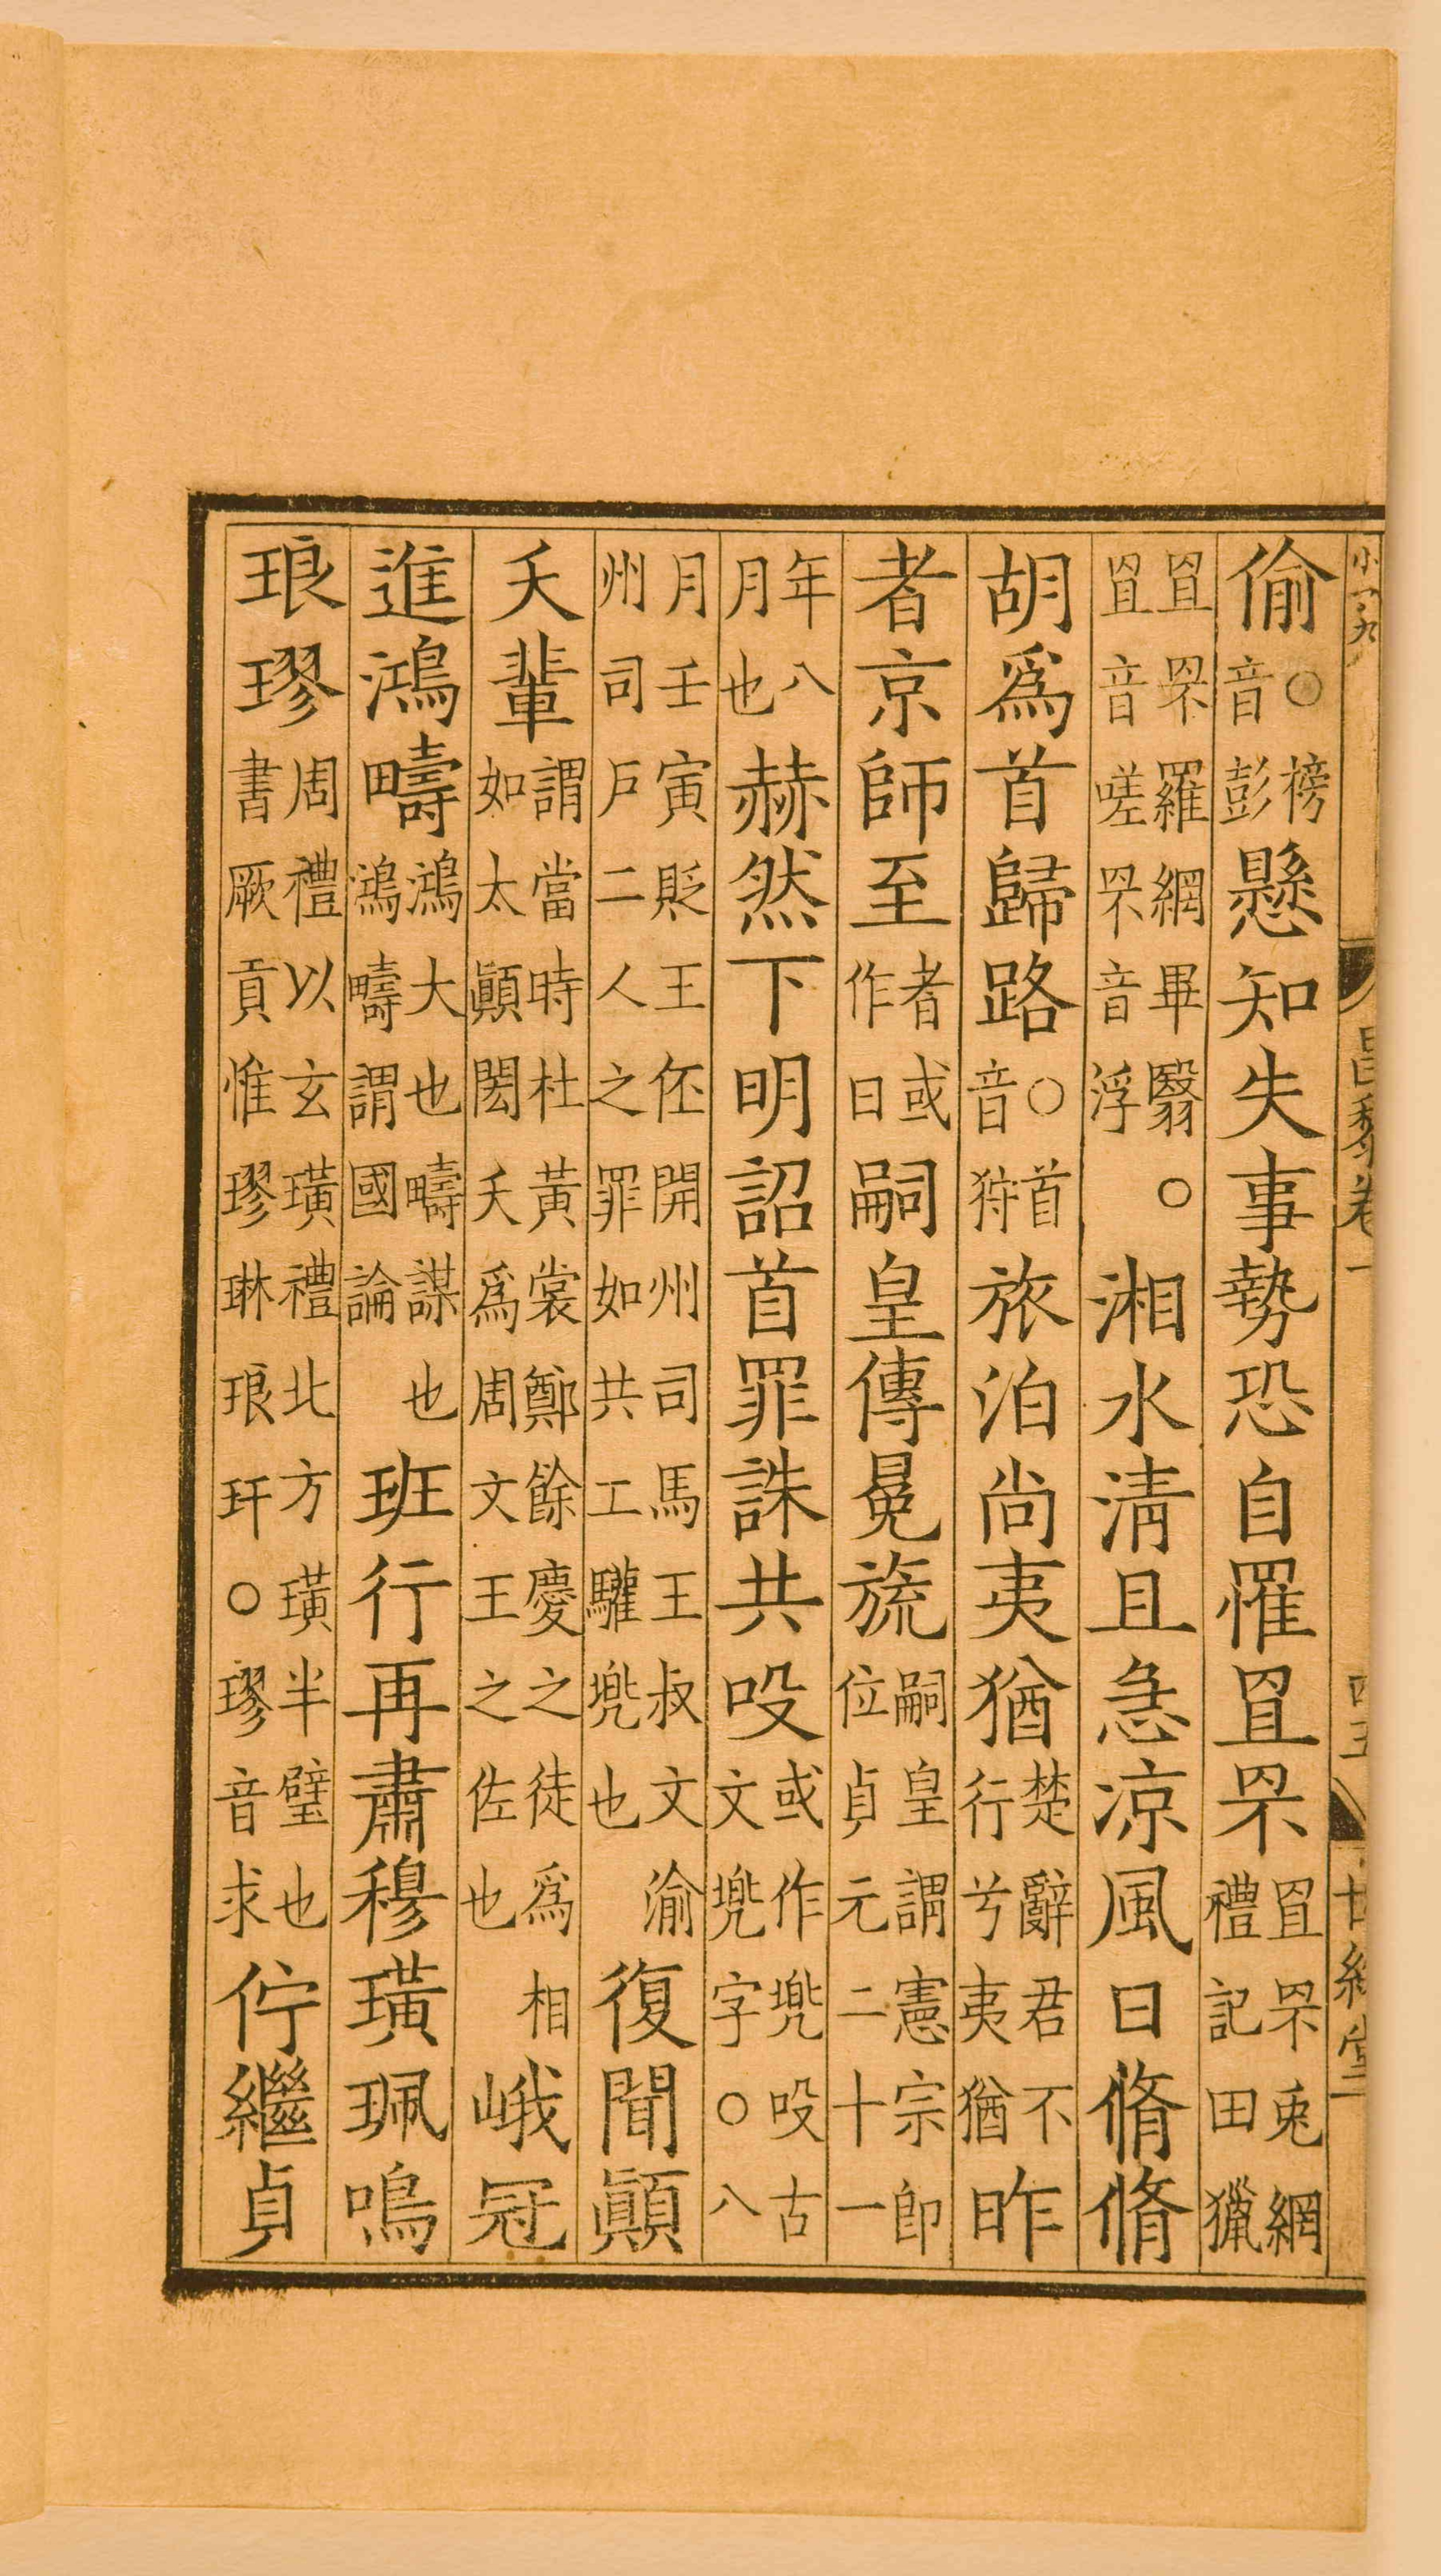 偷○榜音彭懸知失事勢恐自罹罝罘罝罘兎網禮記田獵
罝罘羅網畢翳○罝音嗟罘音浮湘水清且急涼風日脩脩
胡爲首歸路○首音狩旅泊尚夷猶楚辭君不行兮夷猶昨
者京師至者或作日嗣皇傳冕旒嗣皇謂憲宗即位貞元二十一
年八月也赫然下明詔首罪誅共吺或作兠吺古文兠字○八
月壬寅貶王伾開州司馬王叔文渝州司戶二人之罪如共工驩兠也復聞顚
夭輩謂當時杜黃裳鄭餘慶之徒爲相如太顚閎夭爲周文王之佐也峨冠
進鴻疇鴻大也疇謀也鴻疇謂國論班行再肅穆璜珮鳴
琅璆周禮以玄璜禮北方璜半璧也書厥貢惟璆琳琅玕○璆音求佇繼貞